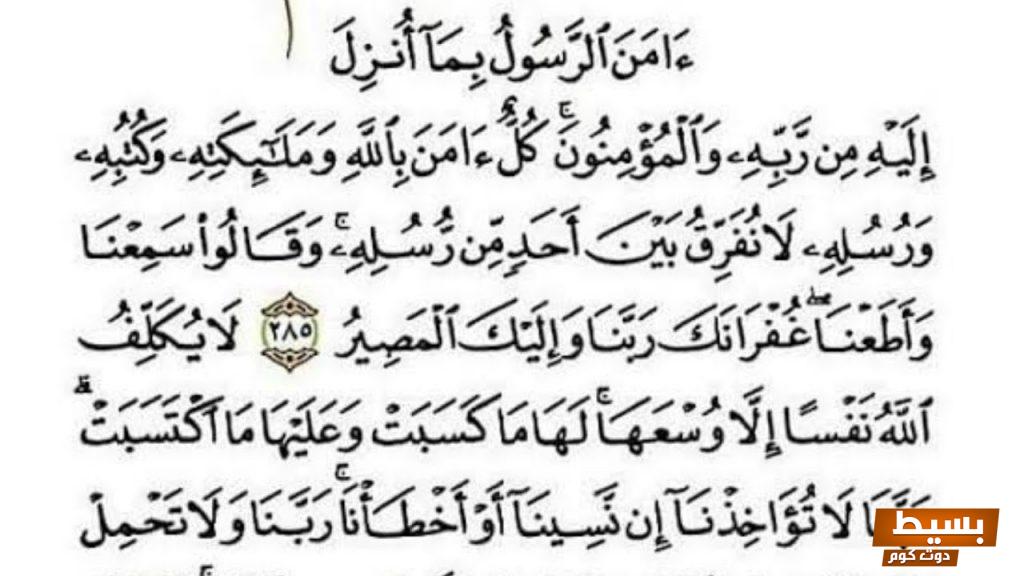 ءَامَنَ ٱلرَّسُولُ بِمَآ أُنزِلَ
إِلَيْهِ مِن رَّبِّهِۦ وَٱلْمُؤْمِنُونَۚ كُلٌّ ءَامَنَ بِٱللَّهِ وَمَلَٰٓئِكَتِهِۦ وَكُتُبِهِۦ
وَرُسُلِهِۦ لَا نُفَرِّقُ بَيْنَ أَحَدٍ مِّن رُّسُلِهِۦۚ وَقَالُوا۟ سَمِعْنَا
وَأَطَعْنَاۖ غُفْرَانَكَ رَبَّنَا وَإِلَيْكَ ٱلْمَصِيرُ ٢٨٥ لَا يُكَلِّفُ
ٱللَّهُ نَفْسًا إِلَّا وُسْعَهَاۚ لَهَا مَا كَسَبَتْ وَعَلَيْهَا مَا ٱكْتَسَبَتْۗ
رَبَّنَا لَا تُؤَاخِذْنَآ إِن نَّسِينَآ أَوْ أَخْطَأْنَاۚ رَبَّنَا وَلَا تَحْمِلْ
بسيط
دوت كوم